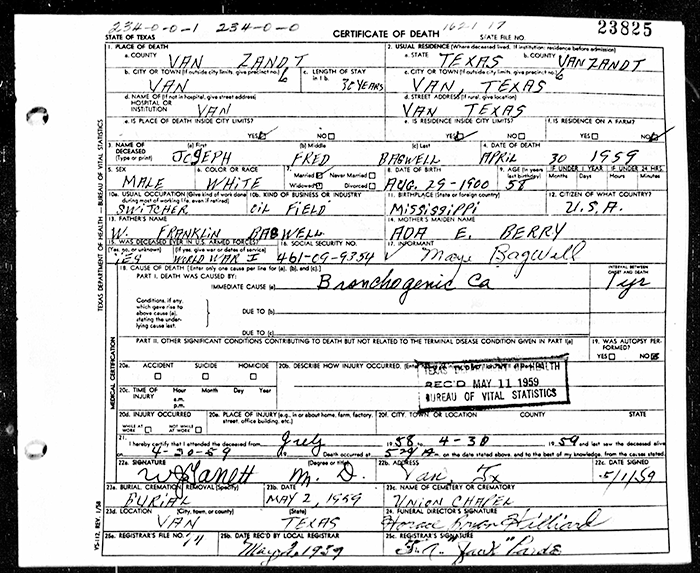 234-0-0-1 234-0-0 162-1 17
CERTIFICATE OF DEATH
STATE OF TEXAS STATE FILE NO. 23825
1. PLACE OF DEATH
a. COUNTY VAN ZANDT
2. USUAL RESIDENCE (Where deceased lived. If institution: residence before admission)
a. STATE TEXAS b. COUNTY VAN ZANDT
b. CITY OR TOWN (If outside city limits, give precinct no.) 6
VAN
c. LENGTH OF STAY in 1 b.
32 YEARS
c. CITY OR TOWN (If outside city limits, give precinct no.) 6
VAN, TEXAS
d. NAME OF (If not in hospital, give street address) HOSPITAL OR INSTITUTION VAN
d. STREET ADDRESS (If rural, give location)
VAN TEXAS
e. IS PLACE OF DEATH INSIDE CITY LIMITS?
YES NO
e. IS RESIDENCE INSIDE CITY LIMITS?
YES NO
f. IS RESIDENCE ON A FARM?
YES NO
3. NAME OF DECEASED (Type or print)
(a) First JOSEPH
(b) Middle FRED
(c) Last BAGWELL
4. DATE OF DEATH
APRIL 30 1959
5. SEX
MALE
6. COLOR OR RACE
WHITE
7. Married Never Married
Widowed Divorced
8. DATE OF BIRTH
AUG. 29-1900
9. AGE (In years last birthday) 58
IF UNDER 1 YEAR Months Days
IF UNDER 24 HRS. Hours Minutes
10a. USUAL OCCUPATION (Give kind of work done during most of working life, even if retired)
SWITCHER
10b. KIND OF BUSINESS OR INDUSTRY
OIL FIELD
11. BIRTHPLACE (State or foreign country)
MISSISSIPPI
12. CITIZEN OF WHAT COUNTRY?
U.S.A.
13. FATHER'S NAME
W. FRANKLIN BAGWELL
14. MOTHER'S MAIDEN NAME
ADA E. BERRY
15. WAS DECEASED EVER IN U.S. ARMED FORCES?
(Yes, no, or unknown) (If yes, give war or dates of service)
YES WORLD WAR I
16. SOCIAL SECURITY NO.
461-09-9354
17. INFORMANT
Maye Bagwell
18. CAUSE OF DEATH [Enter only one cause per line for (a), (b), and (c).]
PART I. DEATH WAS CAUSED BY:
IMMEDIATE CAUSE (a) Bronchogenic Ca
INTERVAL BETWEEN ONSET AND DEATH
1 yr
Conditions, if any, which gave rise to above cause (a), stating the underlying cause last.
DUE TO (b)
DUE TO (c)
PART II. OTHER SIGNIFICANT CONDITIONS CONTRIBUTING TO DEATH BUT NOT RELATED TO THE TERMINAL DISEASE CONDITION GIVEN IN PART I(a)
19. WAS AUTOPSY PERFORMED?
YES NO
20a. ACCIDENT SUICIDE HOMICIDE
20b. DESCRIBE HOW INJURY OCCURRED.
TEXAS DEPARTMENT OF HEALTH
REC'D MAY 11 1959
BUREAU OF VITAL STATISTICS
20c. TIME OF INJURY Hour Month Day Year
20d. INJURY OCCURRED
WHILE AT WORK NOT WHILE AT WORK
20e. PLACE OF INJURY (e.g., in or about home, farm, factory, street, office building, etc.)
20f. CITY, TOWN, OR LOCATION COUNTY STATE
21. I hereby certify that I attended the deceased from July 1958 to 4-30 1959 and last saw the deceased alive
on 4-30-59 Death occurred at m. on the date stated above, and to the best of my knowledge, from the causes stated.
22a. SIGNATURE (Degree or title)
M. D.
22b. ADDRESS
Van Tx
22c. DATE SIGNED
5/1/59
23a. BURIAL, CREMATION, REMOVAL (Specify)
BURIAL
23b. DATE
MAY 2, 1959
23c. NAME OF CEMETERY OR CREMATORY
UNION CHAPEL
23d. LOCATION (City, town, or county) (State)
VAN TEXAS
24. FUNERAL DIRECTOR'S SIGNATURE
Hilliard
25a. REGISTRAR'S FILE NO.
25b. DATE REC'D BY LOCAL REGISTRAR
1959
25c. REGISTRAR'S SIGNATURE
"Jack"
TEXAS DEPARTMENT OF HEALTH—BUREAU OF VITAL STATISTICS
MEDICAL CERTIFICATION
VS-112, REV. 1/58